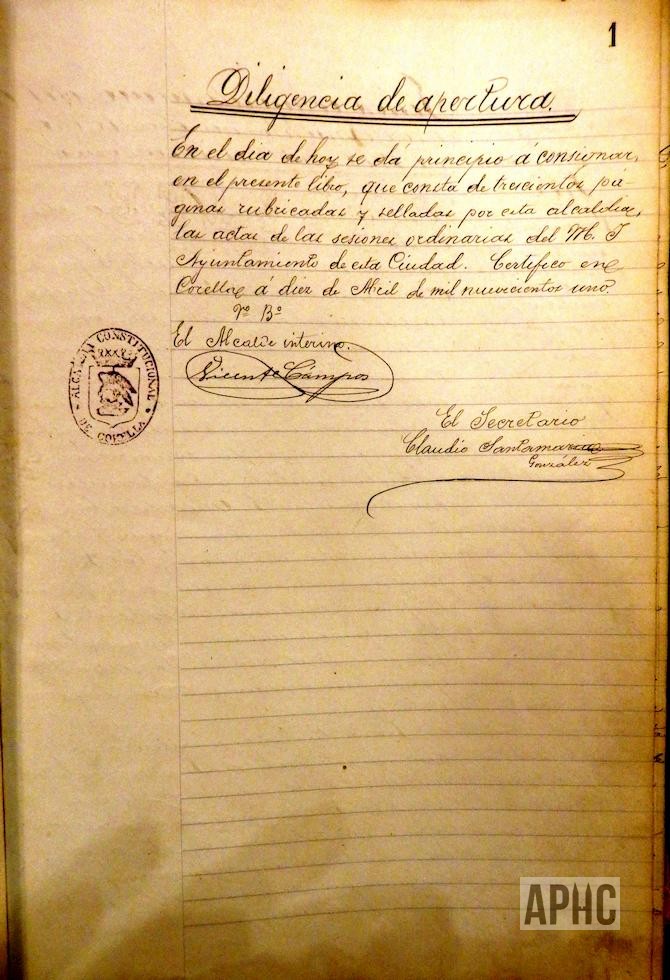 1
Diligencia de apertura.
En el dia de hoy se dá principio á consignar,
en el presente libro, que consta de trescientos pá
ginas rubricadas y selladas por esta alcaldia,
las actas de las sesiones ordinarias del M. I
Ayuntamiento de esta Ciudad. Certifico en
Corella á diez de Abril de mil nuevecientos uno
Vº Bº
El Alcalde interino.
Vicente Cámpos
ALCALDIA CONSTITUCIONAL
DE CORELLA
El Secretario
Claudio Santamaria
González
APHC